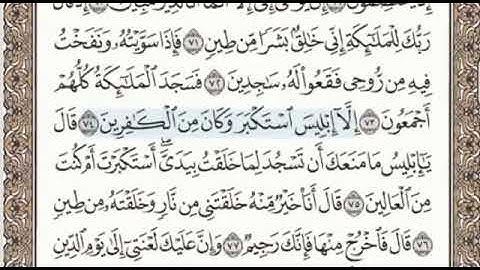 إِن يُوحَىٰ إِلَىَّ إِلَّآ أَنَّمَآ أَنَا۠ نَذِيرٌ مُّبِينٌ ٧٠ إِذْ قَالَ
رَبُّكَ لِلْمَلَٰٓئِكَةِ إِنِّى خَٰلِقٌۢ بَشَرًا مِّن طِينٍ ٧١ فَإِذَا سَوَّيْتُهُۥ وَنَفَخْتُ
فِيهِ مِن رُّوحِى فَقَعُوا۟ لَهُۥ سَٰجِدِينَ ٧٢ فَسَجَدَ ٱلْمَلَٰٓئِكَةُ كُلُّهُمْ
أَجْمَعُونَ ٧٣ إِلَّآ إِبْلِيسَ ٱسْتَكْبَرَ وَكَانَ مِنَ ٱلْكَٰفِرِينَ ٧٤ قَالَ
يَٰٓإِبْلِيسُ مَا مَنَعَكَ أَن تَسْجُدَ لِمَا خَلَقْتُ بِيَدَىَّ ۖ أَسْتَكْبَرْتَ أَمْ كُنتَ
مِنَ ٱلْعَالِينَ ٧٥ قَالَ أَنَا۠ خَيْرٌ مِّنْهُ ۖ خَلَقْتَنِى مِن نَّارٍ وَخَلَقْتَهُۥ مِن طِينٍ
٧٦ قَالَ فَٱخْرُجْ مِنْهَا فَإِنَّكَ رَجِيمٌ ٧٧ وَإِنَّ عَلَيْكَ لَعْنَتِىٓ إِلَىٰ يَوْمِ ٱلدِّينِ